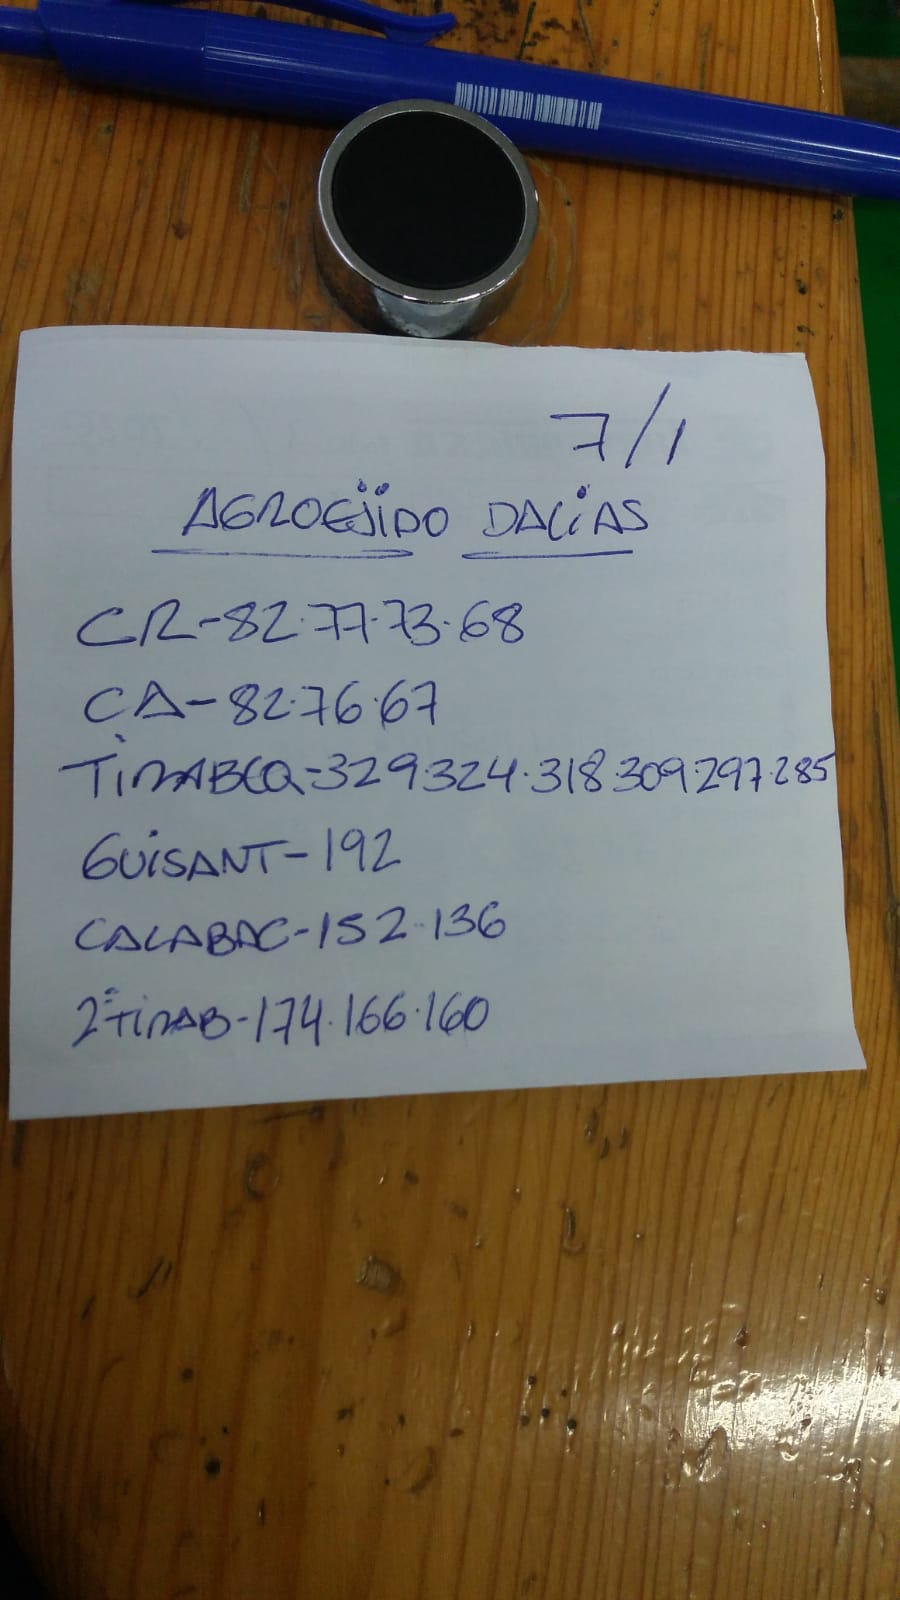 7/1
AGROEJIDO DALIAS
CR-82.77.73.68
CA-82.76.67
TIRABEQ-329.324.318.309.297.285
GUISANT-192
CALABAC-152.136
2ªTIRAB-174.166.160